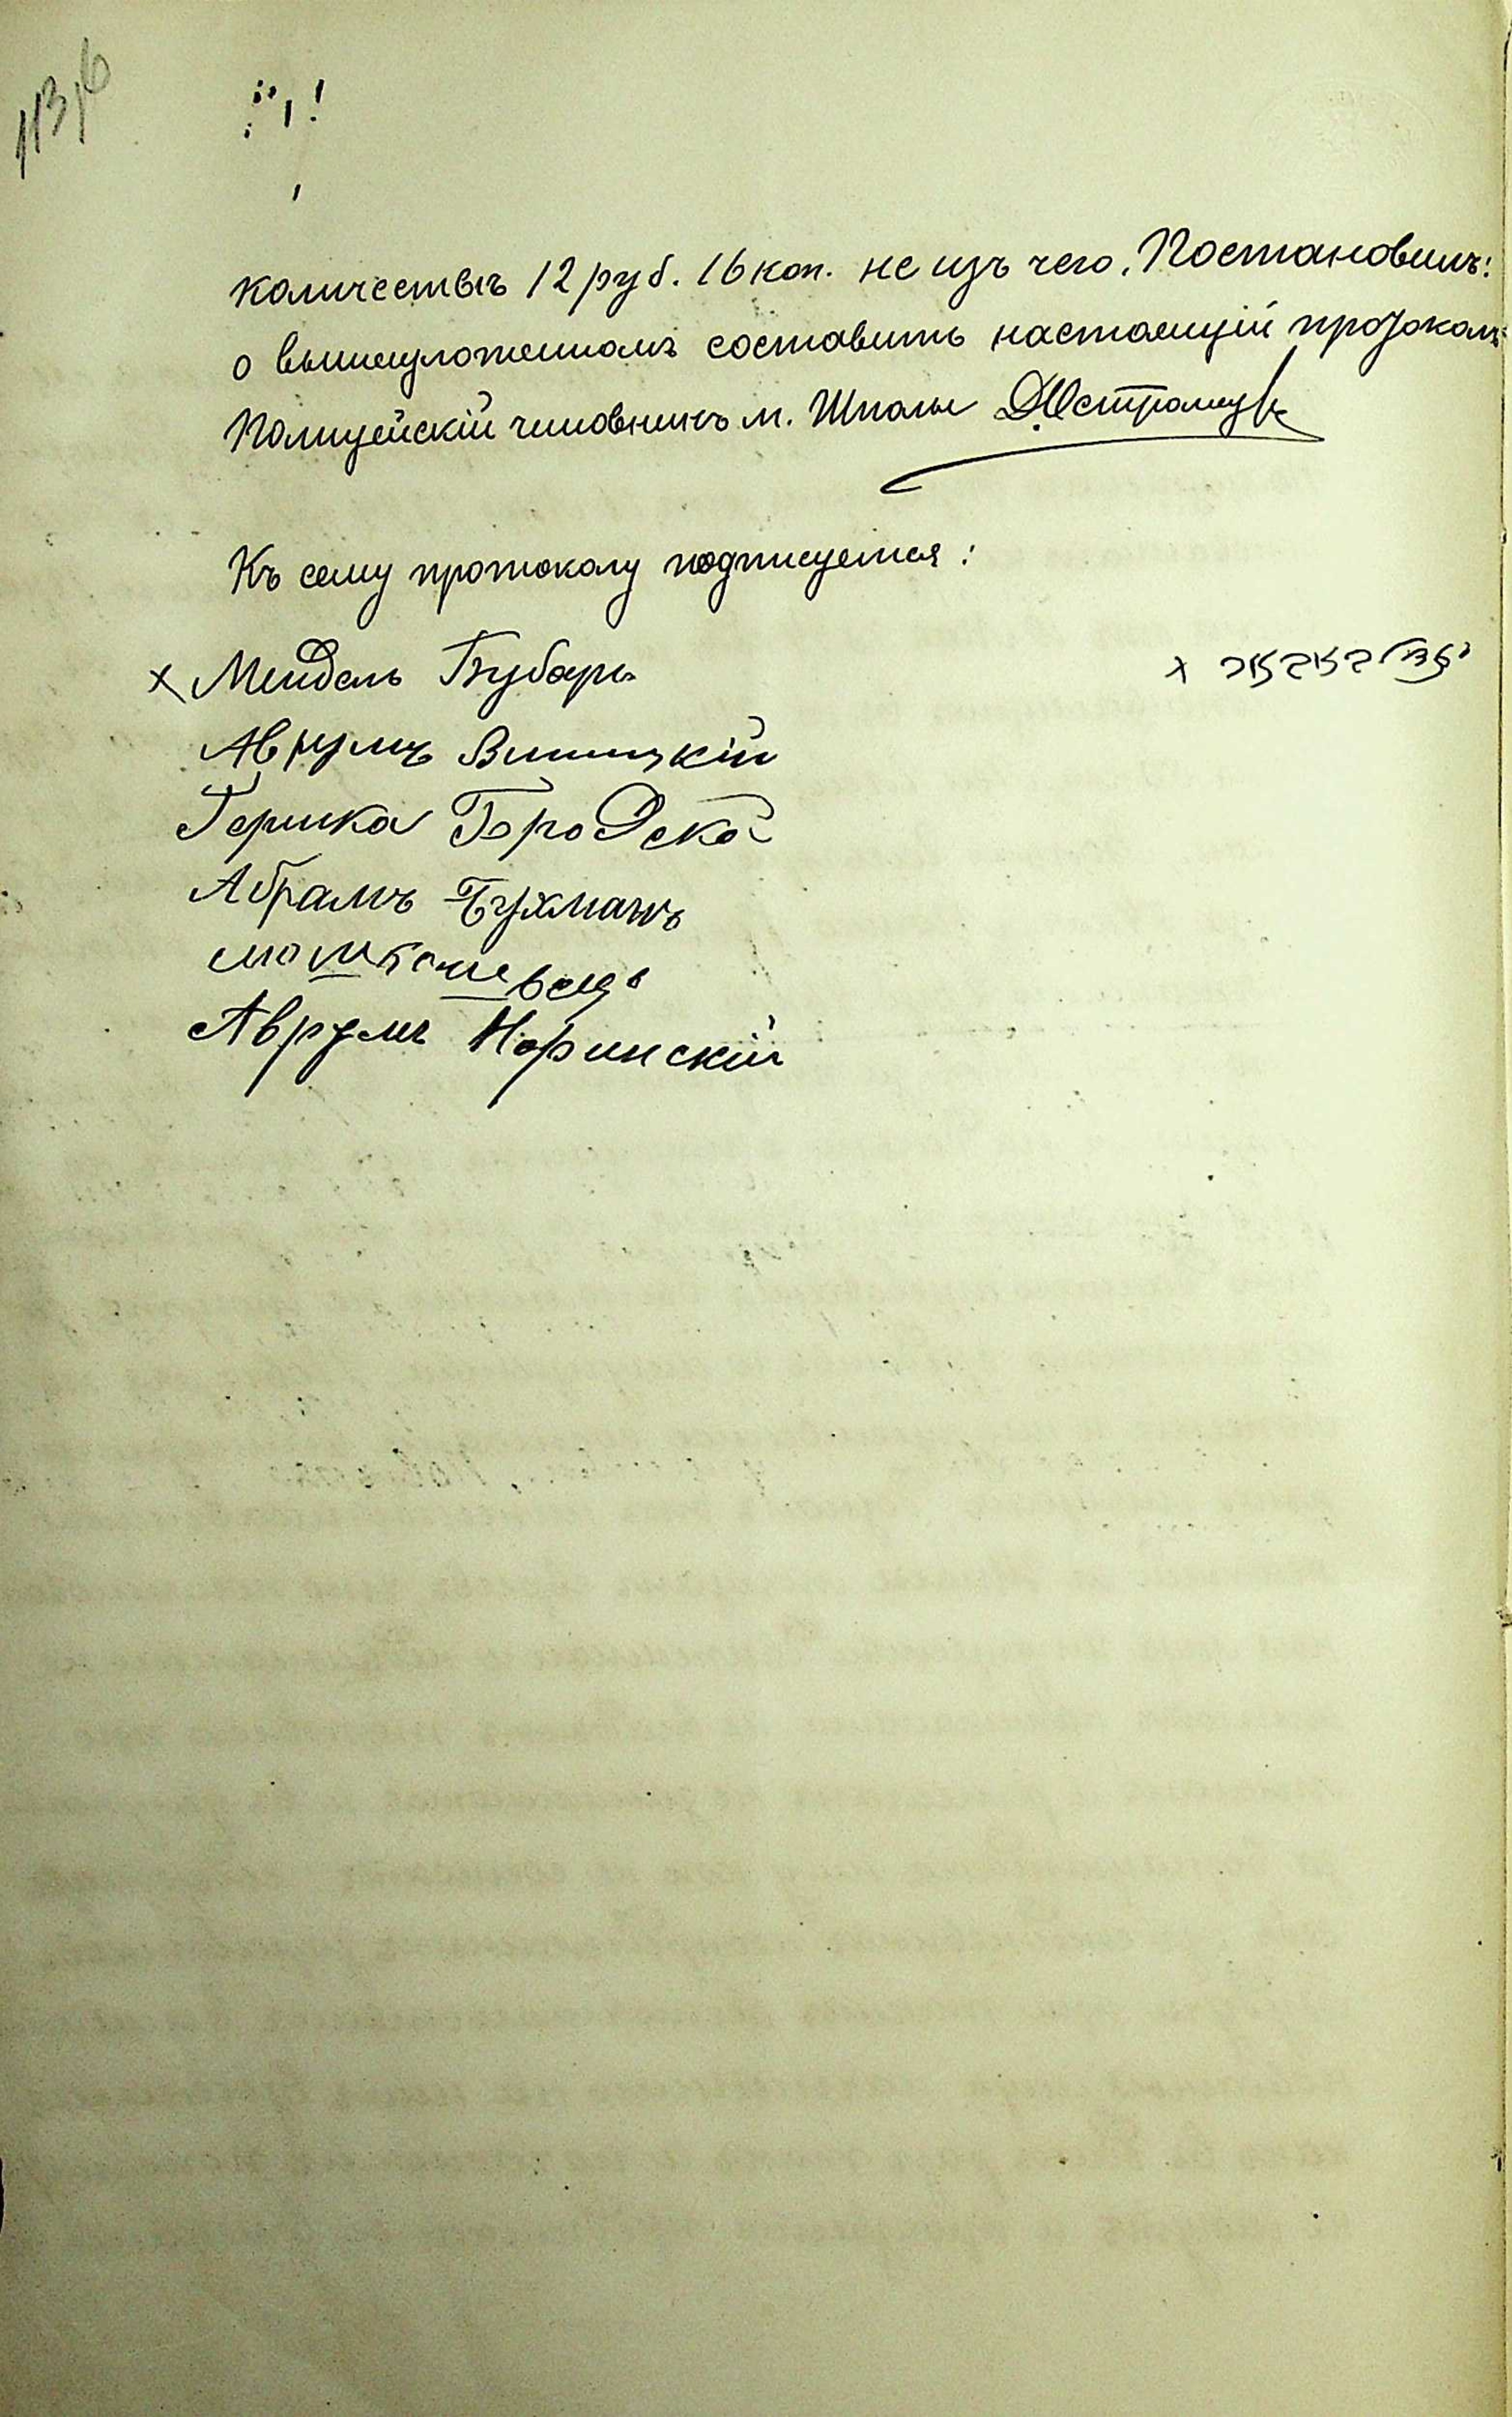 количествѣ 12 руб. 16 коп. не изъ чего. Постановилъ:
о вышеизложенномъ составить настоящій протоколъ.
Полицейскій чиновникъ м. Шполы
Къ сему протоколу подписуемся:
х Мендель Бубарь
Аврумъ Виницкій
Гершка Городской
Абрамъ Бухманъ
Аврумъ Норинскій